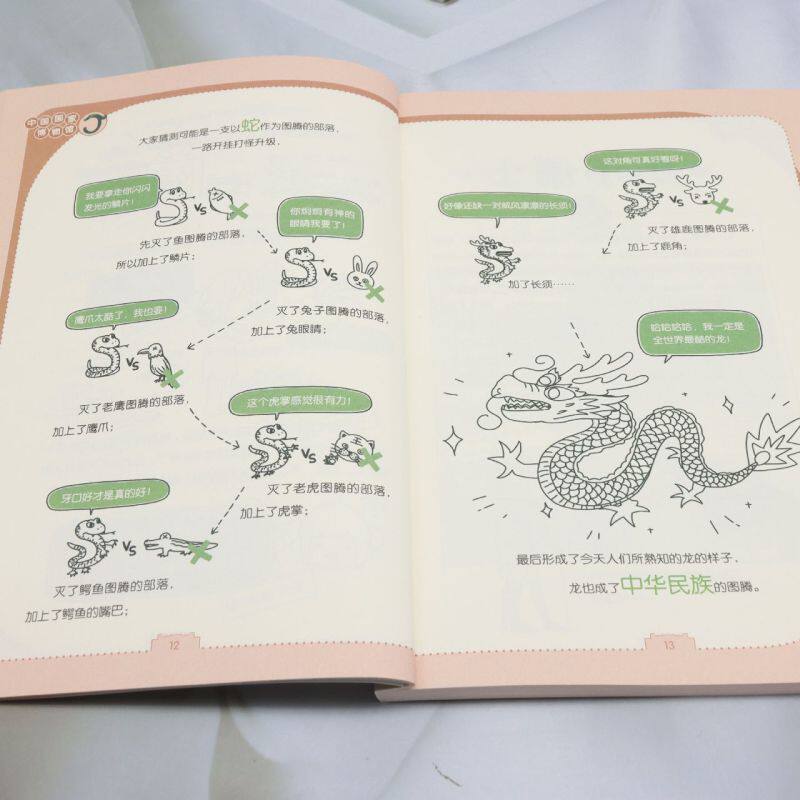 中国国家
博物馆
大家猜测可能是一支以蛇作为图腾的部落，
一路开挂打怪升级，
我要拿走你闪闪
发光的鳞片！
VS
先灭了鱼图腾的部落，
所以加上了鳞片；
你炯炯有神的
眼睛我要了！
VS
灭了兔子图腾的部落，
加上了兔眼睛；
鹰爪太酷了，我也要！
VS
灭了老鹰图腾的部落，
加上了鹰爪；
这个虎掌感觉很有力！
VS
灭了老虎图腾的部落，
加上了虎掌；
牙口好才是真的好！
VS
灭了鳄鱼图腾的部落，
加上了鳄鱼的嘴巴；
12
这对角可真好看呀！
VS
灭了雄鹿图腾的部落，
加上了鹿角；
好像还缺一对威风凛凛的长须！
加了长须……
哈哈哈哈，我一定是
全世界最酷的龙！
最后形成了今天人们所熟知的龙的样子，
龙也成了中华民族的图腾。
13